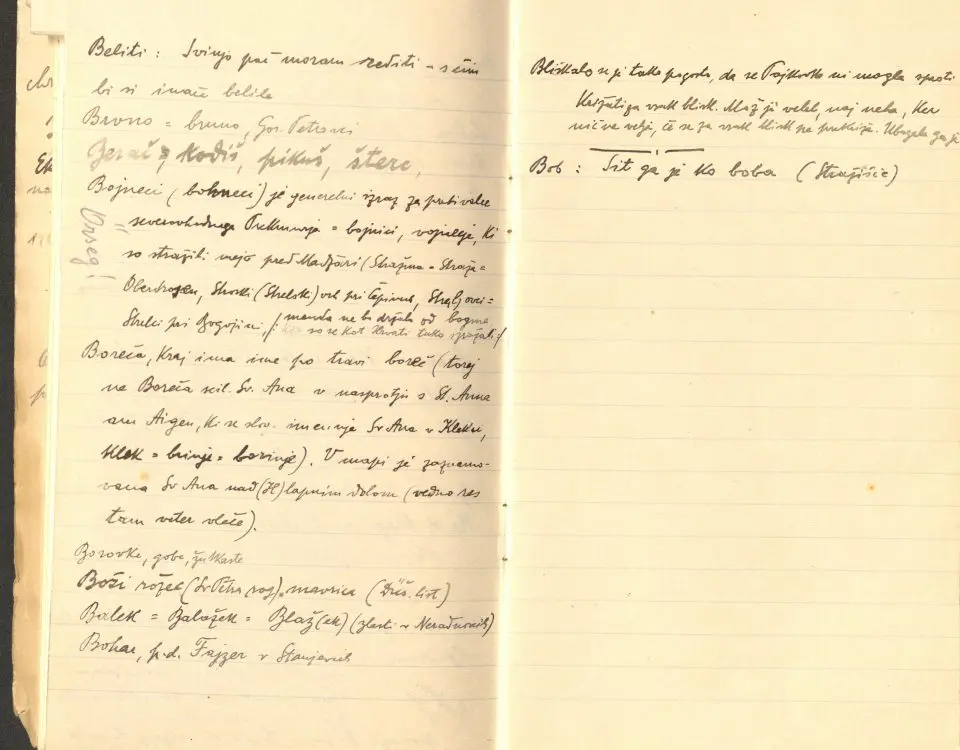 Beliti: Svinjo pač moram rediti – s čim
bi si inače belila
Brono = bruno, Gor. Petrovci
Berač, Kodiš, pikuš, šterc,
Bojneci (bohneci) je generelni izraz za prebivalce
Örseg!
severovhodnega Prekmurja = bojnici, vojneji, ki
so stražili mejo pred Madžari (Stražna = Straža =
Oberdrosen, Stroski (Strelski) vrh pri Čepincih, Streljovci =
Strelci pri Bogojini, /: menda ne bo držalo od bogme
ker so se kot Hrvati tako :/
Boreča, kraj ima ime po travi boreč (torej
ne Boreča scil. Sv. Ana v nasprotju s St. Anna
am Aigen, ki se slov. imenuje Sv Ana v Kleku,
Klek = brinje = borinje). V mapi je zaznamo-
vana Sv Ana nad (H)lapnim dolom (vedno res
tam veter vleče).
Borovke, gobe, žulkaste
Boži rožec (Sv Petra rog) = mavrica (Düš. list)
Balek = Balažek = Blaž(ek) (zlasti v Neradnovcih)
Bohar, p.d. Fajzer v Stanjevcih
Bliskalo se je tako pogosto, da se Fajkovka ni mogla sproti
križati za vsak blisk. Mož je velel, naj neha, ker
nič ne velja, če se za vsak blisk ne prekriža. Ubogala ga je
Bob: Sit ga je ko boba (Stražišče)